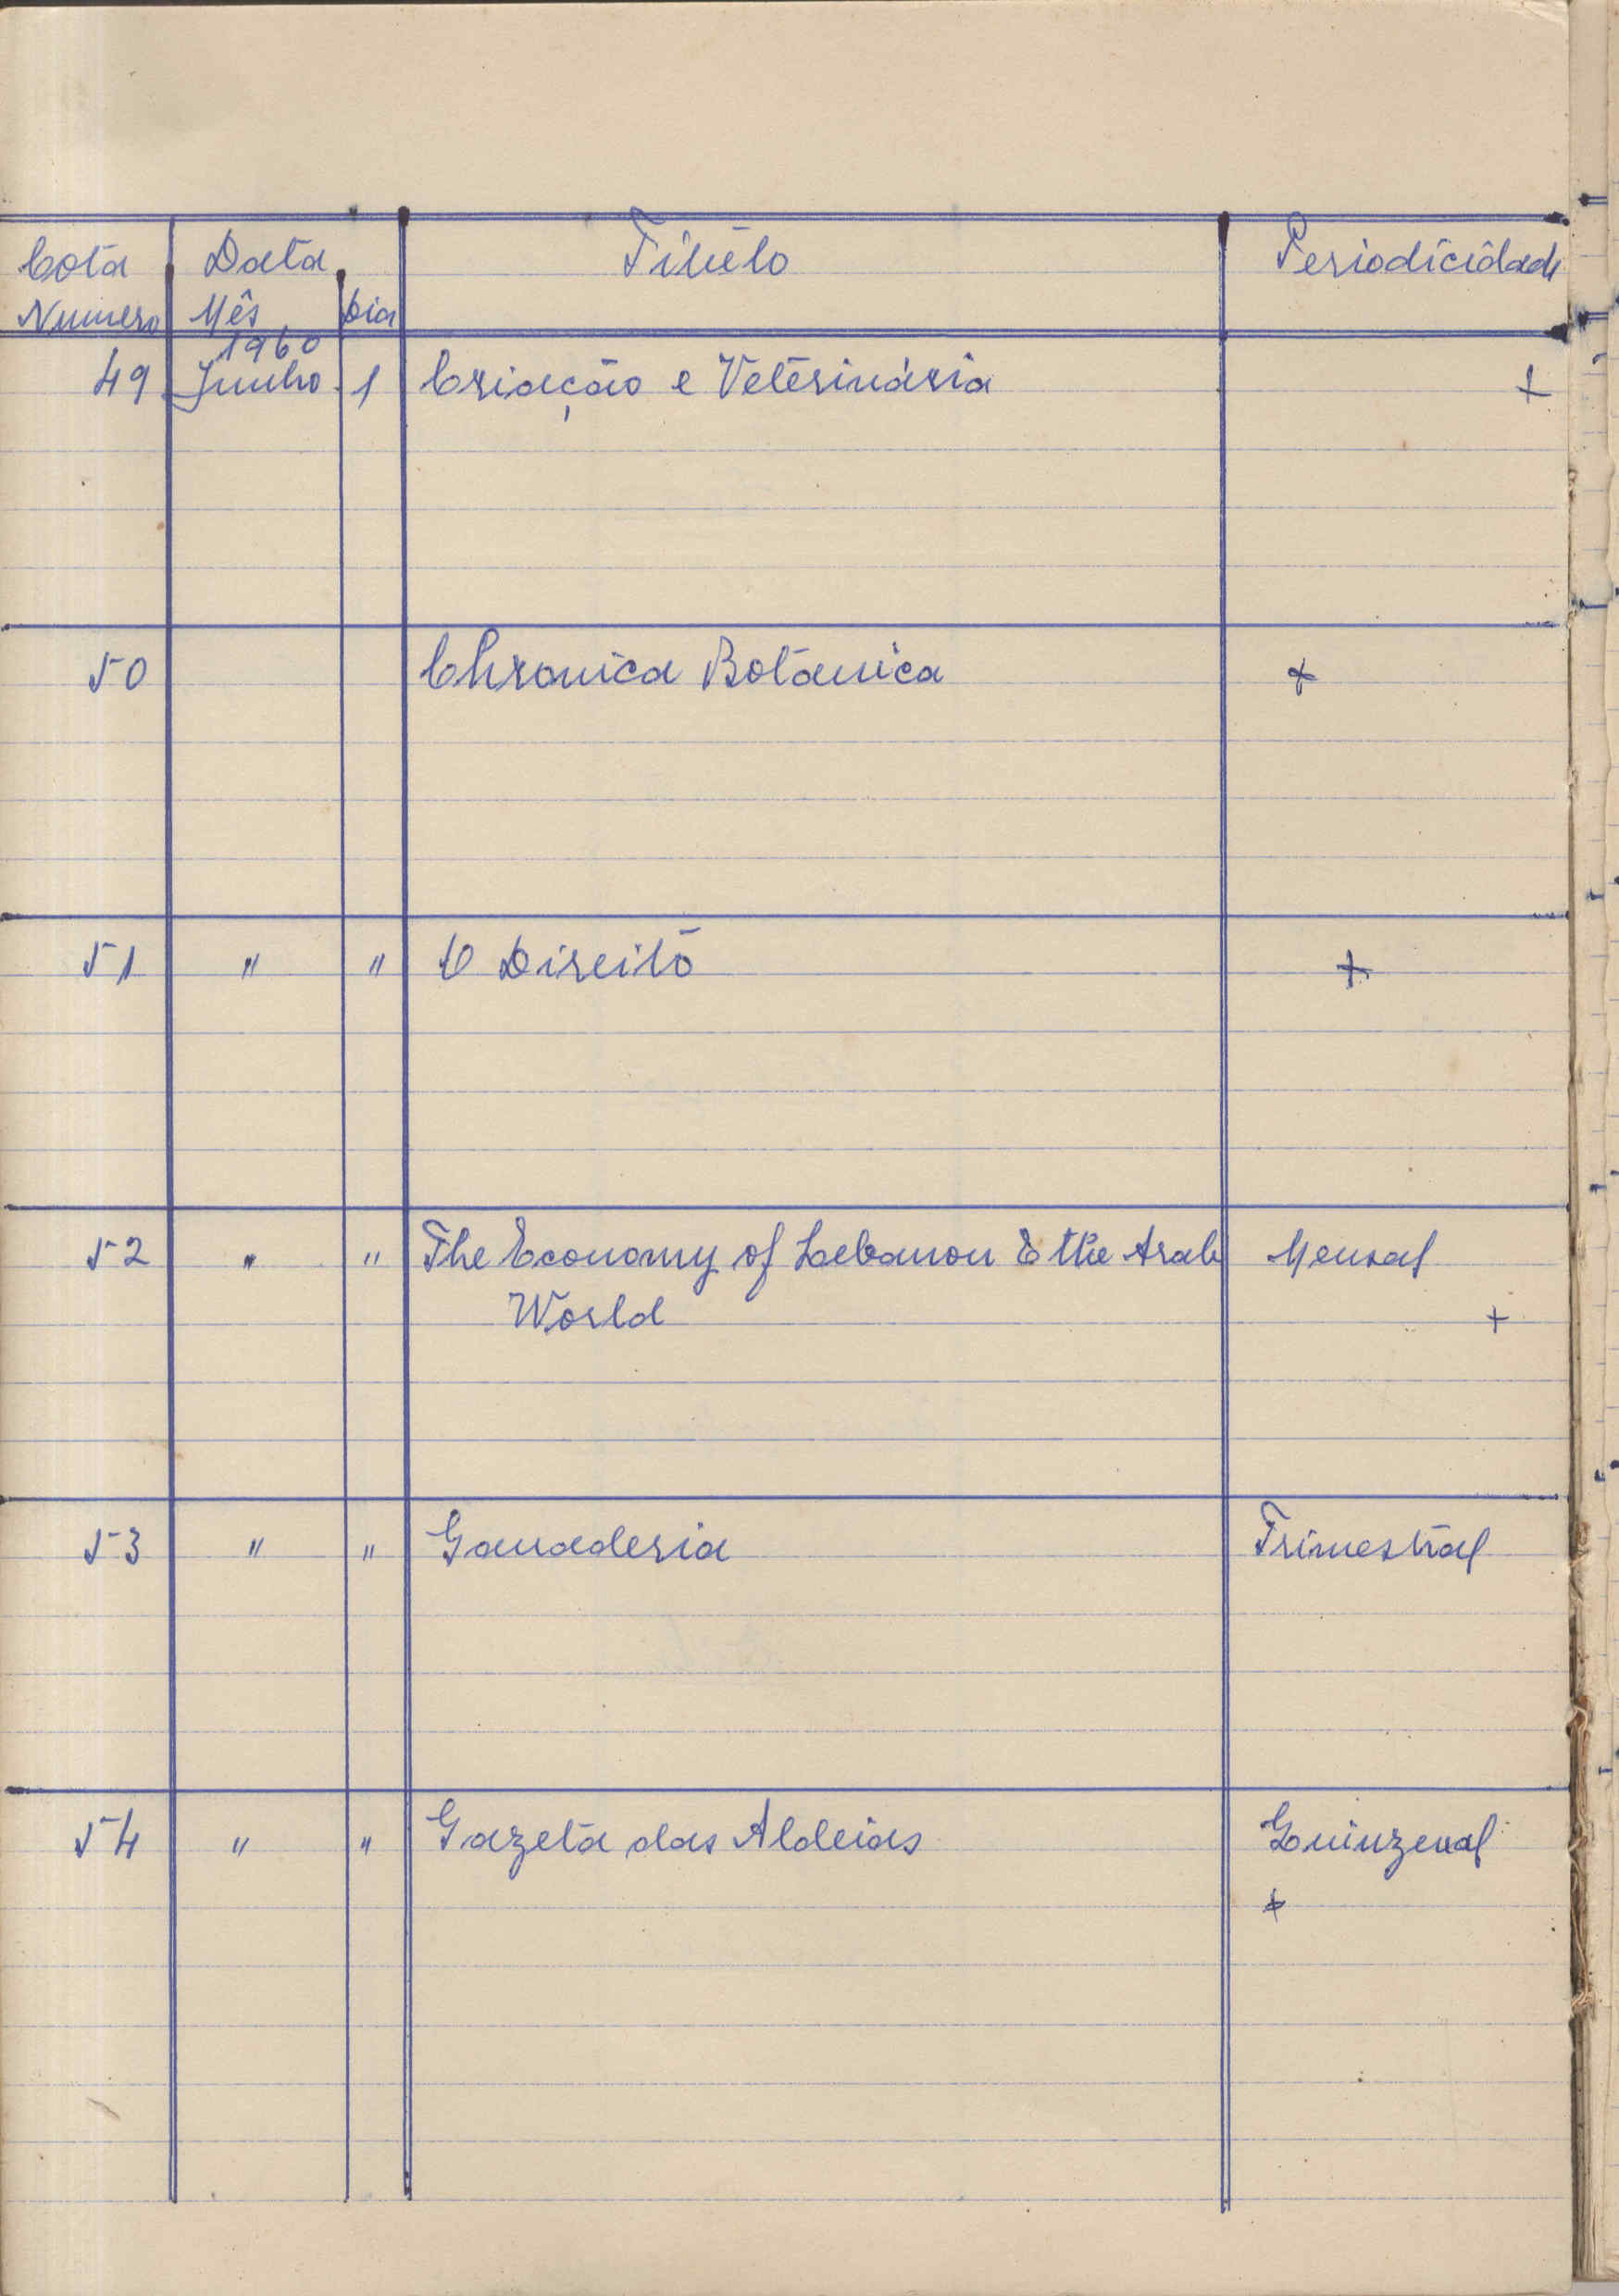 Cota Data Titulo Periodicidade
Numero Mês Dia
1960
49 Junho 1 Criação e Veterinária +
50 Chronica Botanica +
51 " " O Direito +
52 " " The Economy of Lebanon & the Arab Mensal
World +
53 " " Ganaderia Trimestral
54 " " Gazeta das Aldeias Quinzenal
+